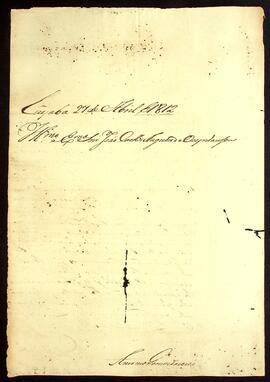 Cuyaba 27 de Abril de 1812
Illmo e Exmo Snr João Carlos Augusto d'Oeynhausen